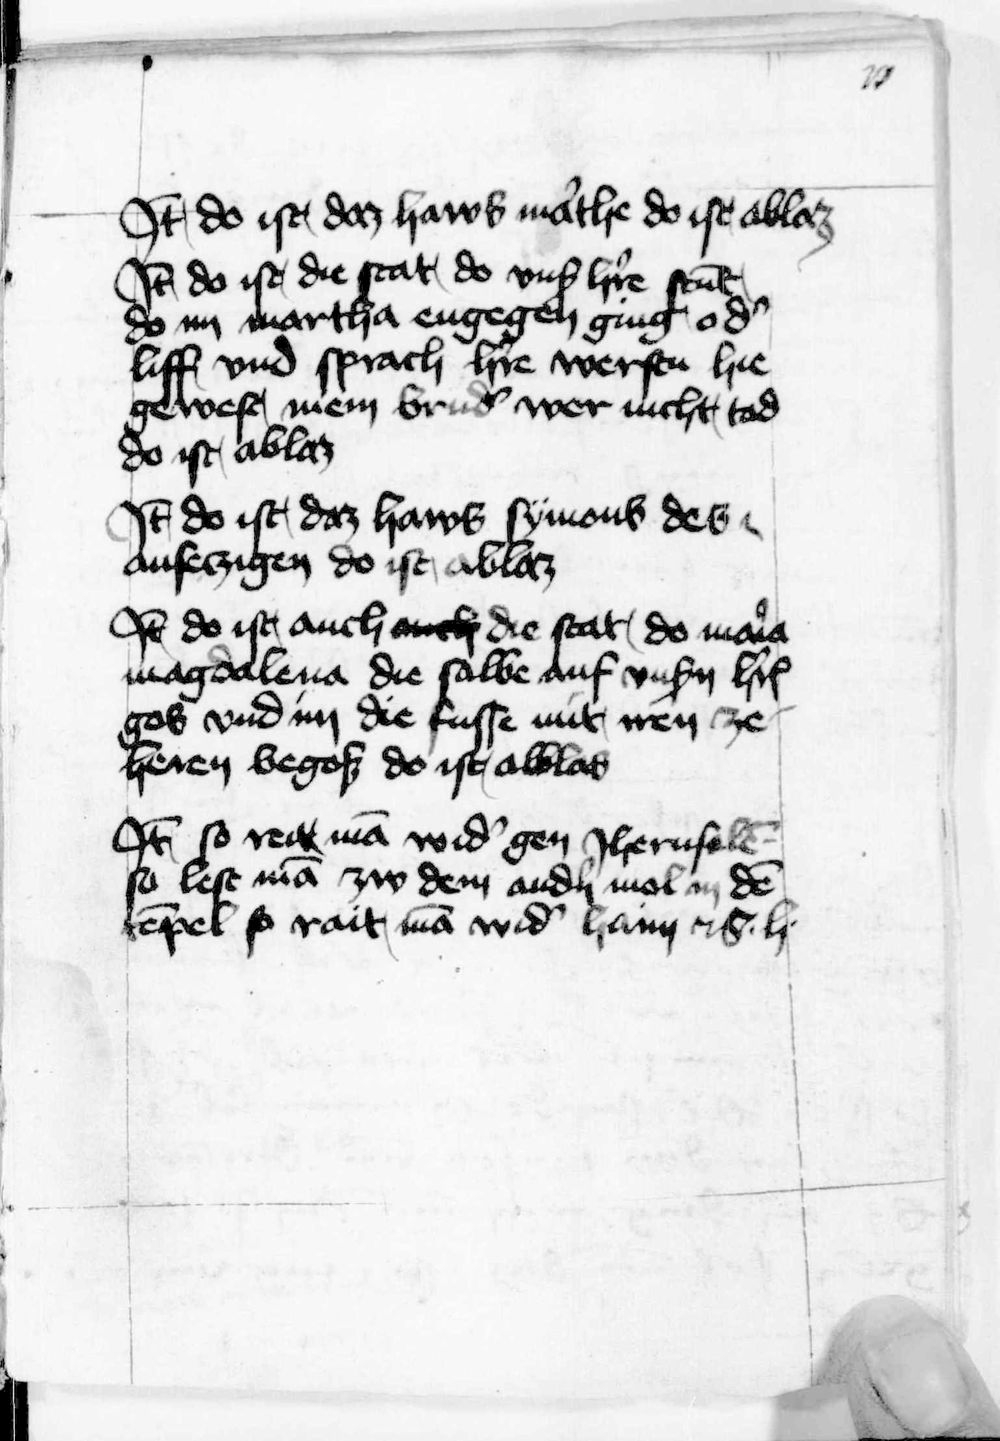 It̄ do ist daz haws mar̓the do ist ablaz
It̄ do ist die stat do vnß hr̓re stūt
do im martha engegen ging od̓
liff vnd sprach hr̓re werstu hie
gewest mein brud̓ wer nicht tod
do ist ablaz
It̄ do ist daz haws symons des
ausetzigen do ist ablaz
It̄ do ist auch auch die stat do maria
magdalena die salbe auf vnßn hr̓n
gos vnd im die fusse mit iren ze
heren begoß do ist ablas
It̄ so reit mā wid̓ gen Jherusalē
so lest mā zw dem andn̓ mol in dē
tēpel so rait mā wid̓ haim